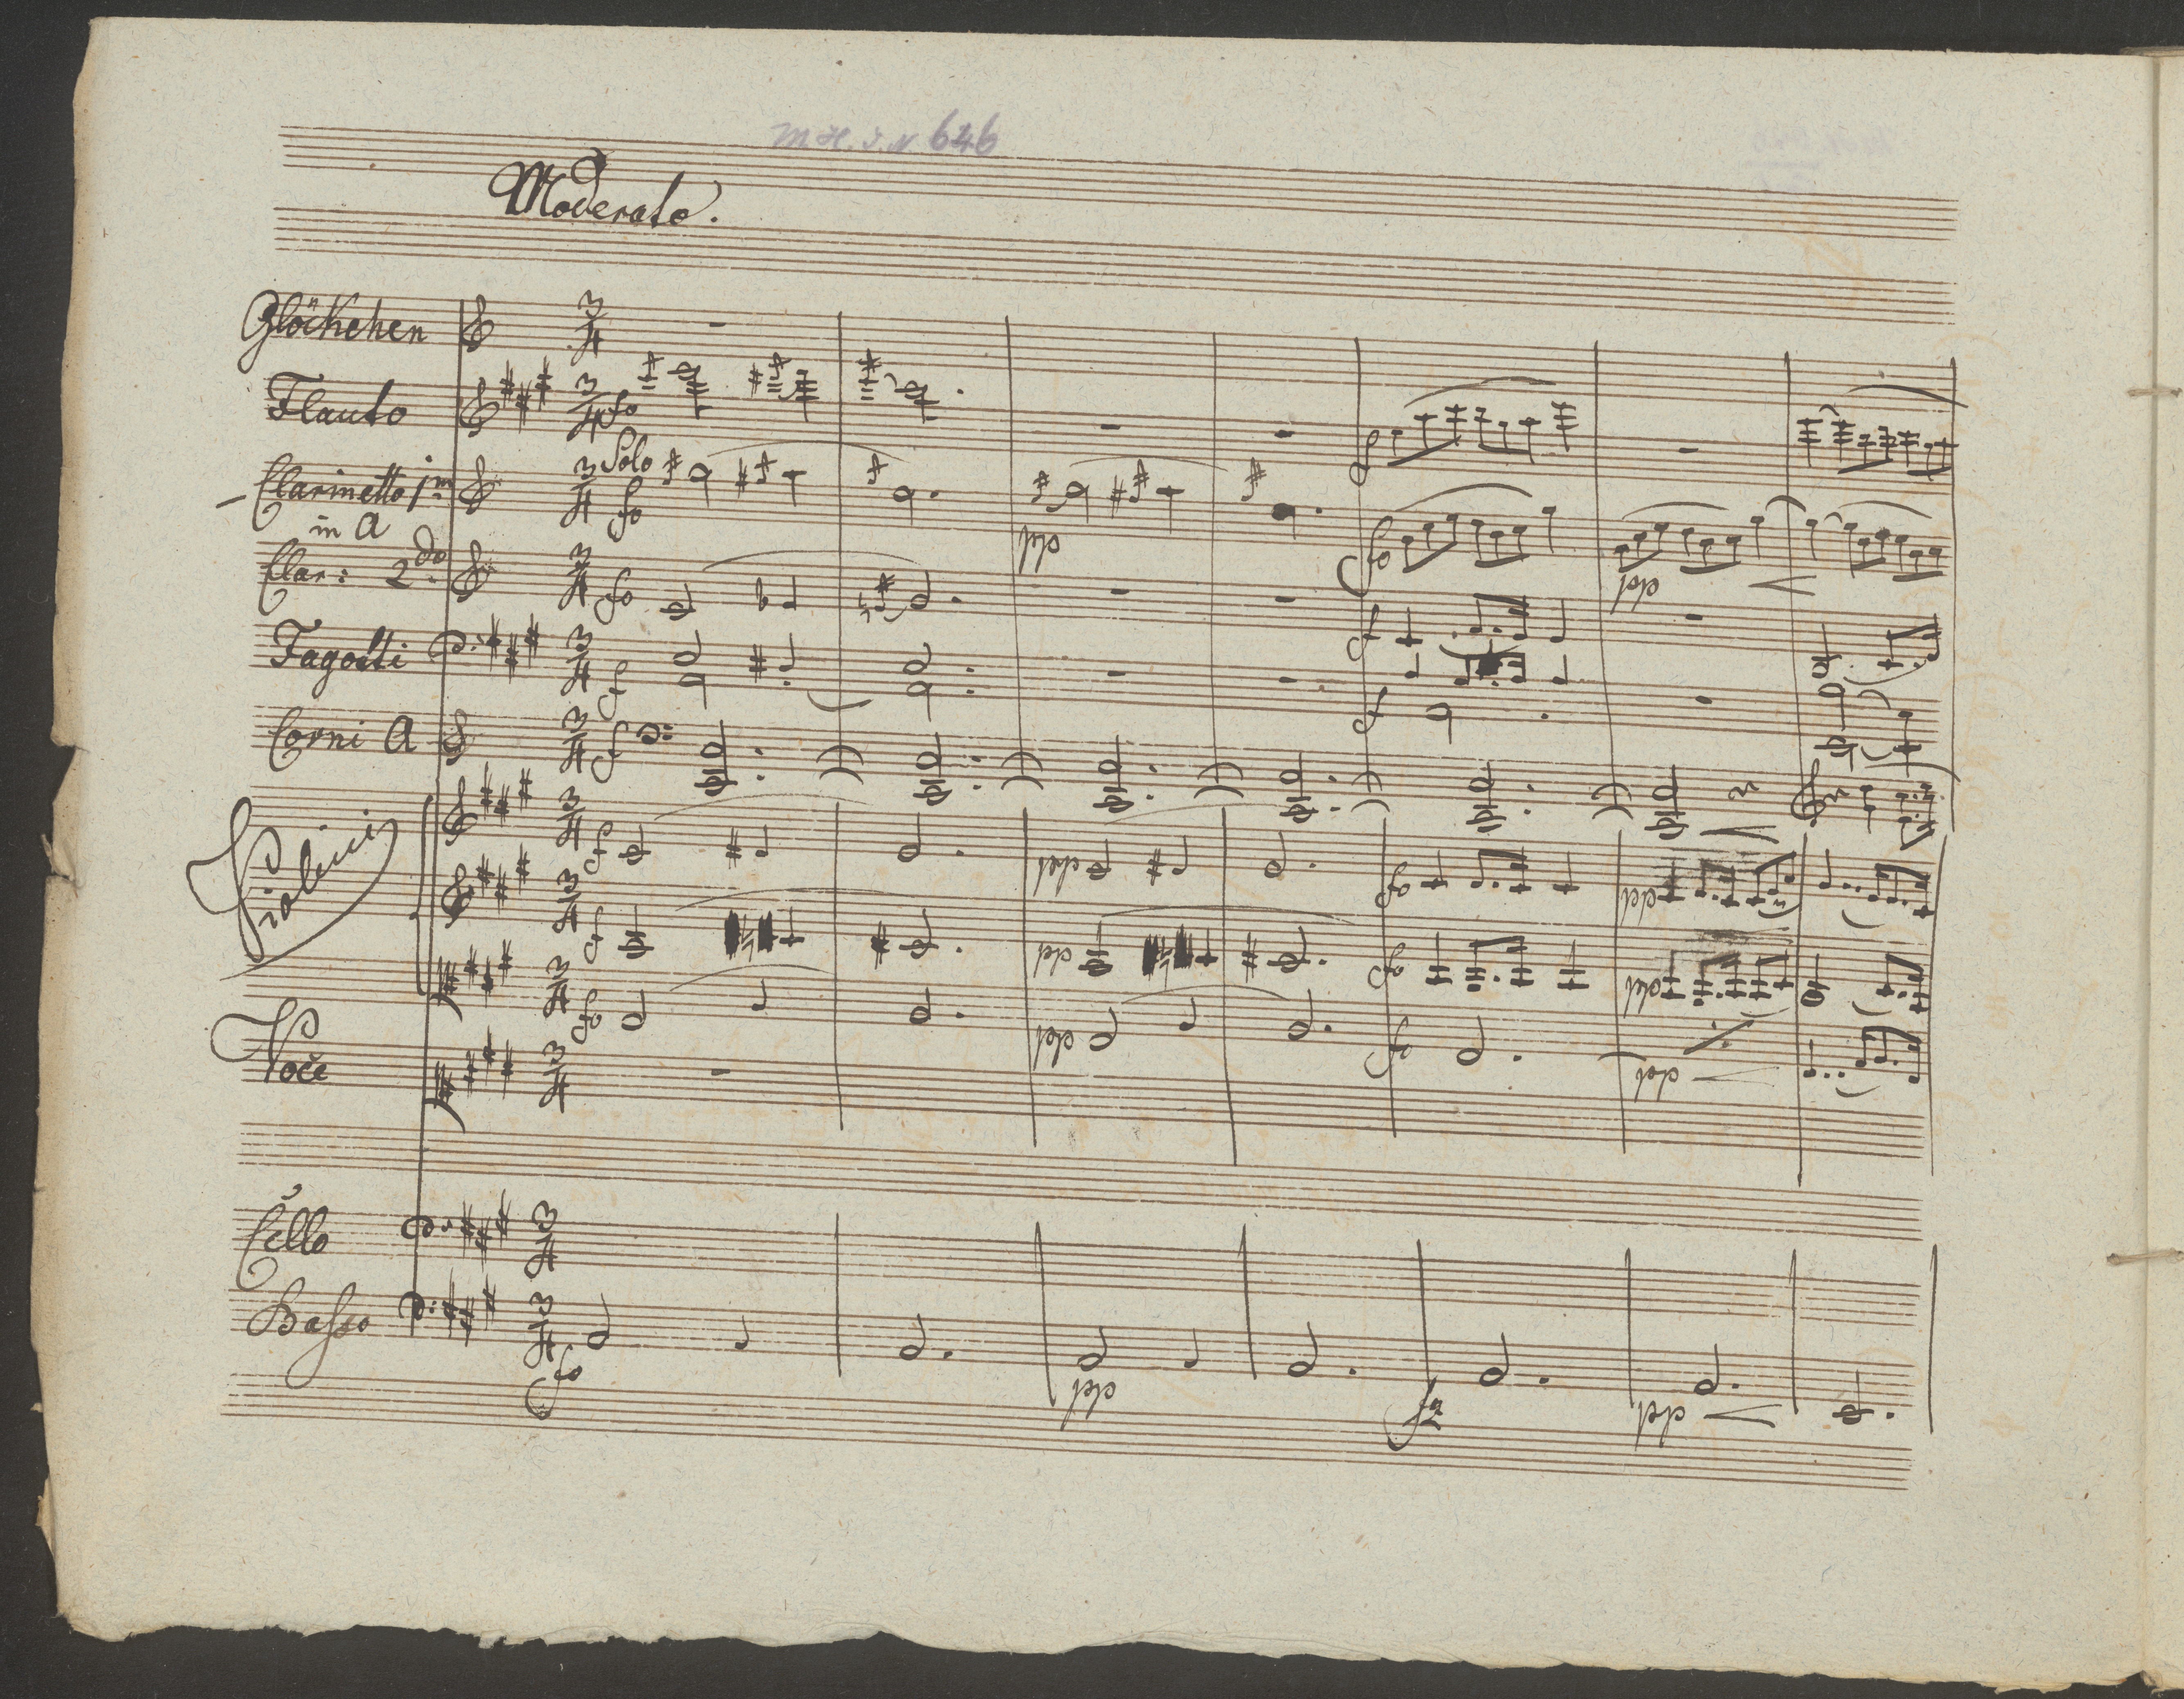 M H. I. N. 646
Moderato.
Glöckchen
Flauto
fo
f
Solo
Clarinetto 1mo
in A
fo
pp
fo
pp
Clar: 2do
fo
f
Fagotti
f
f
Corni A
f
Violini
f
f
fo
Voce
Cello
Basso
fo
fz